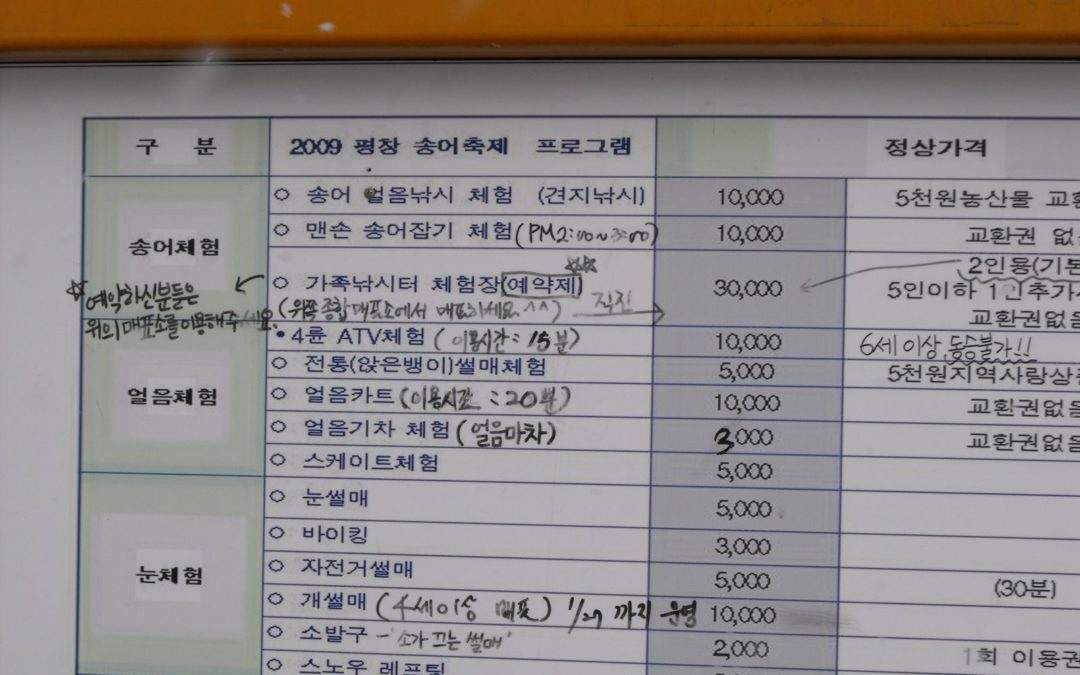 구 분 2009 평창 송어축제 프로그램 정상가격
송어체험
○ 송어 얼음낚시 체험 (견지낚시) 10,000 5천원농산물 교환
○ 맨손 송어잡기 체험(PM2:00~3:00) 10,000 교환권 없
○ 가족낚시터 체험장(예약제) 30,000 2인용(기본
5인이하 1인추가
(위쪽 종합매표소에서 매표하세요.^^) 직진 교환권없음
☆예약하신분들은
위의 매표소를 이용해주세요.
얼음체험
• 4륜 ATV체험 (이용시간: 15분) 10,000 6세 이상, 동승불가!!
○ 전통(앉은뱅이)썰매체험 5,000 5천원지역사랑상
○ 얼음카트(이용시간 :20분) 10,000 교환권없음
○ 얼음기차 체험(얼음마차) 3,000 교환권없음
○ 스케이트체험 5,000
눈체험
○ 눈썰매 5,000
○ 바이킹 3,000
○ 자전거썰매 5,000 (30분)
○ 개썰매 (4세이상 매표) 1/27 까지 운영 10,000
○ 소발구 -'소가 끄는 썰매' 2,000 1회 이용권
○ 스노우 레프팅